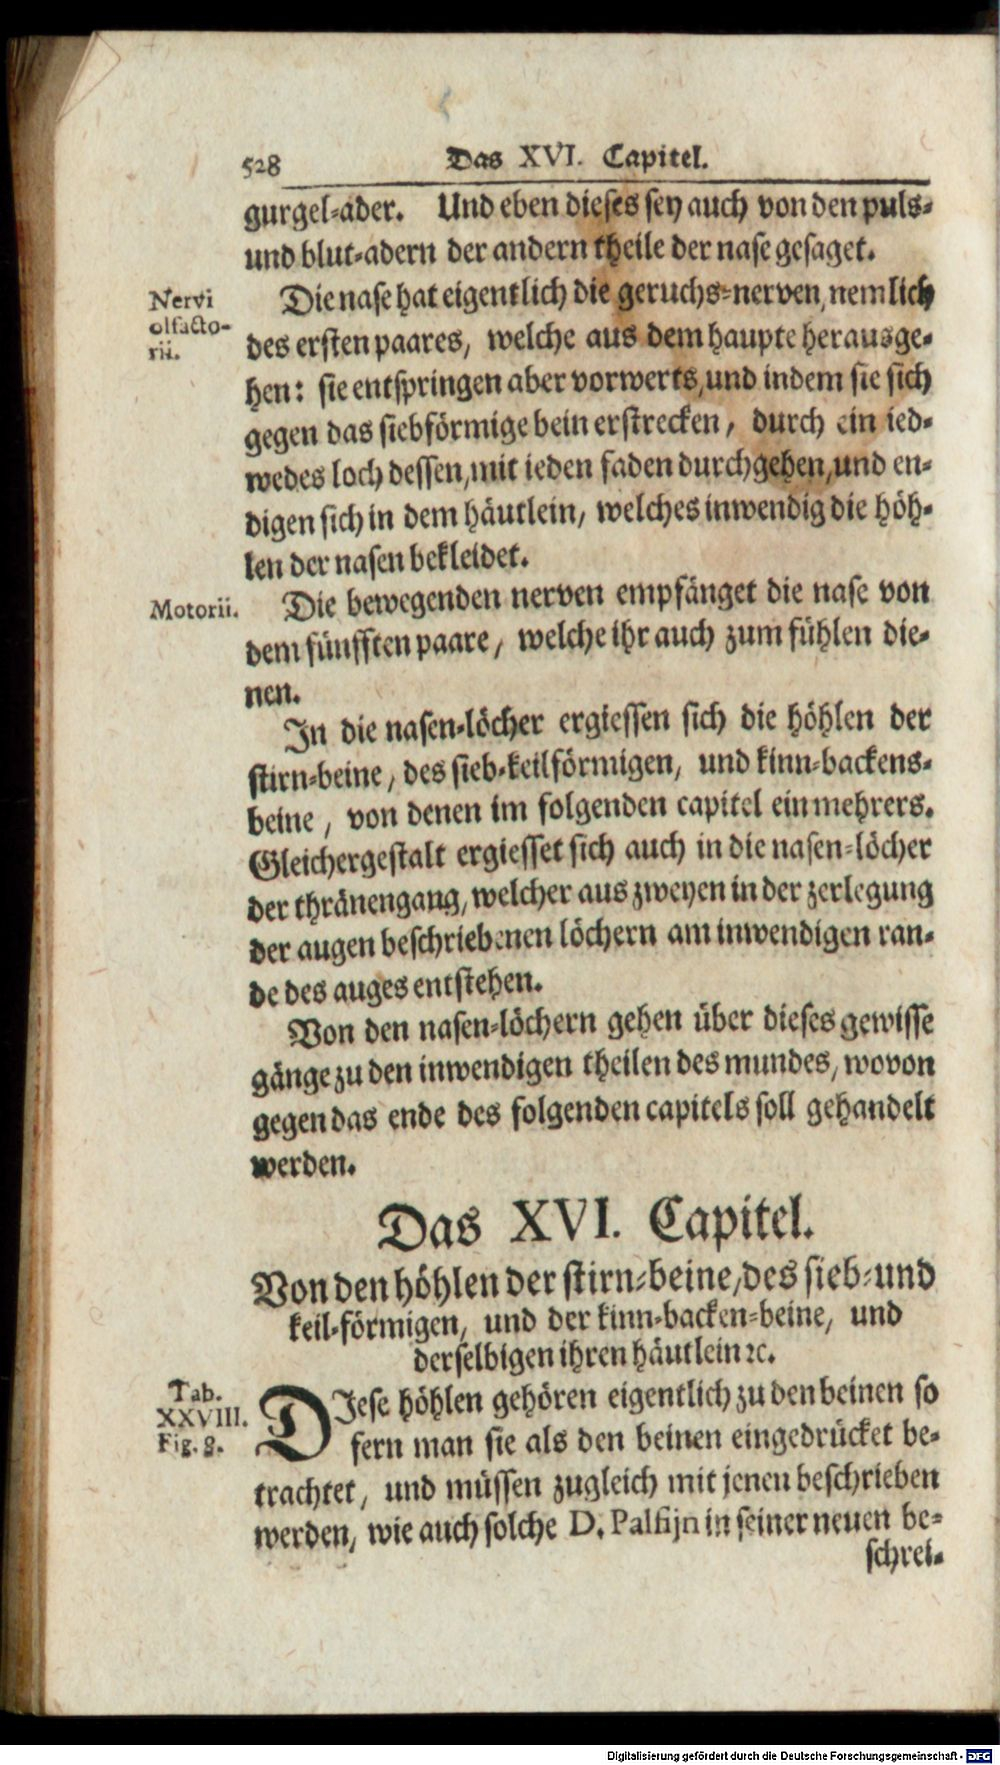 528 Das XVI. Capitel.
gurgel-ader. Und eben dieses sey auch von den puls-
und blut-adern der andern theile der nase gesaget.
Nervi
olfacto-
rii.
Die nase hat eigentlich die geruchs-nerven, nemlich
des ersten paares, welche aus dem haupte herausge-
hen: sie entspringen aber vorwerts, und indem sie sich
gegen das siebförmige bein erstrecken, durch ein ied-
wedes loch dessen, mit ieden faden durchgehen, und en-
digen sich in dem häutlein, welches inwendig die höh-
len der nasen bekleidet.
Motorii.
Die bewegenden nerven empfänget die nase von
dem fünfften paare, welche ihr auch zum fühlen die-
nen.
In die nasen-löcher ergiessen sich die höhlen der
stirn-beine, des sieb-keilförmigen, und kinn-backens-
beine, von denen im folgenden capitel ein mehrers.
Gleichergestalt ergiesset sich auch in die nasen-löcher
der thränengang, welcher aus zweyen in der zerlegung
der augen beschriebenen löchern am inwendigen ran-
de des auges entstehen.
Von den nasen-löchern gehen über dieses gewisse
gänge zu den inwendigen theilen des mundes, wovon
gegen das ende des folgenden capitels soll gehandelt
werden.
Das XVI. Capitel.
Von den höhlen der stirn-beine, des sieb-und
keil-förmigen, und der kinn-backen-beine, und
derselbigen ihren häutlein ꝛc.
Tab.
XXVIII.
Fig. 8.
DIese höhlen gehören eigentlich zu den beinen so
fern man sie als den beinen eingedrücket be-
trachtet, und müssen zugleich mit jenen beschrieben
werden, wie auch solche D. Palfijn in seiner neuen be-
schrei-
Digitalisierung gefördert durch die Deutsche Forschungsgemeinschaft - DFG